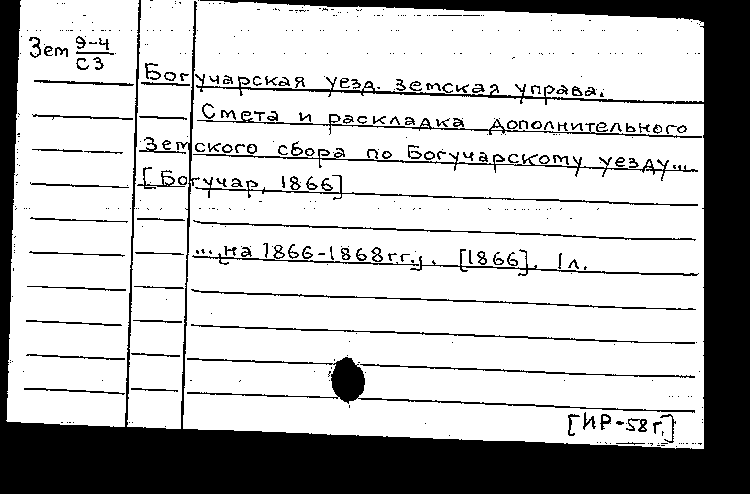 Зем 9-4
С3
Богучарская уезд. земская управа.
Смета и раскладка дополнительного
земского сбора по Богучарскому уезду...
[Богучар, 1866]
...[на 1866-1868гг.]. [1866]. 1л.
[ИР-58г.]